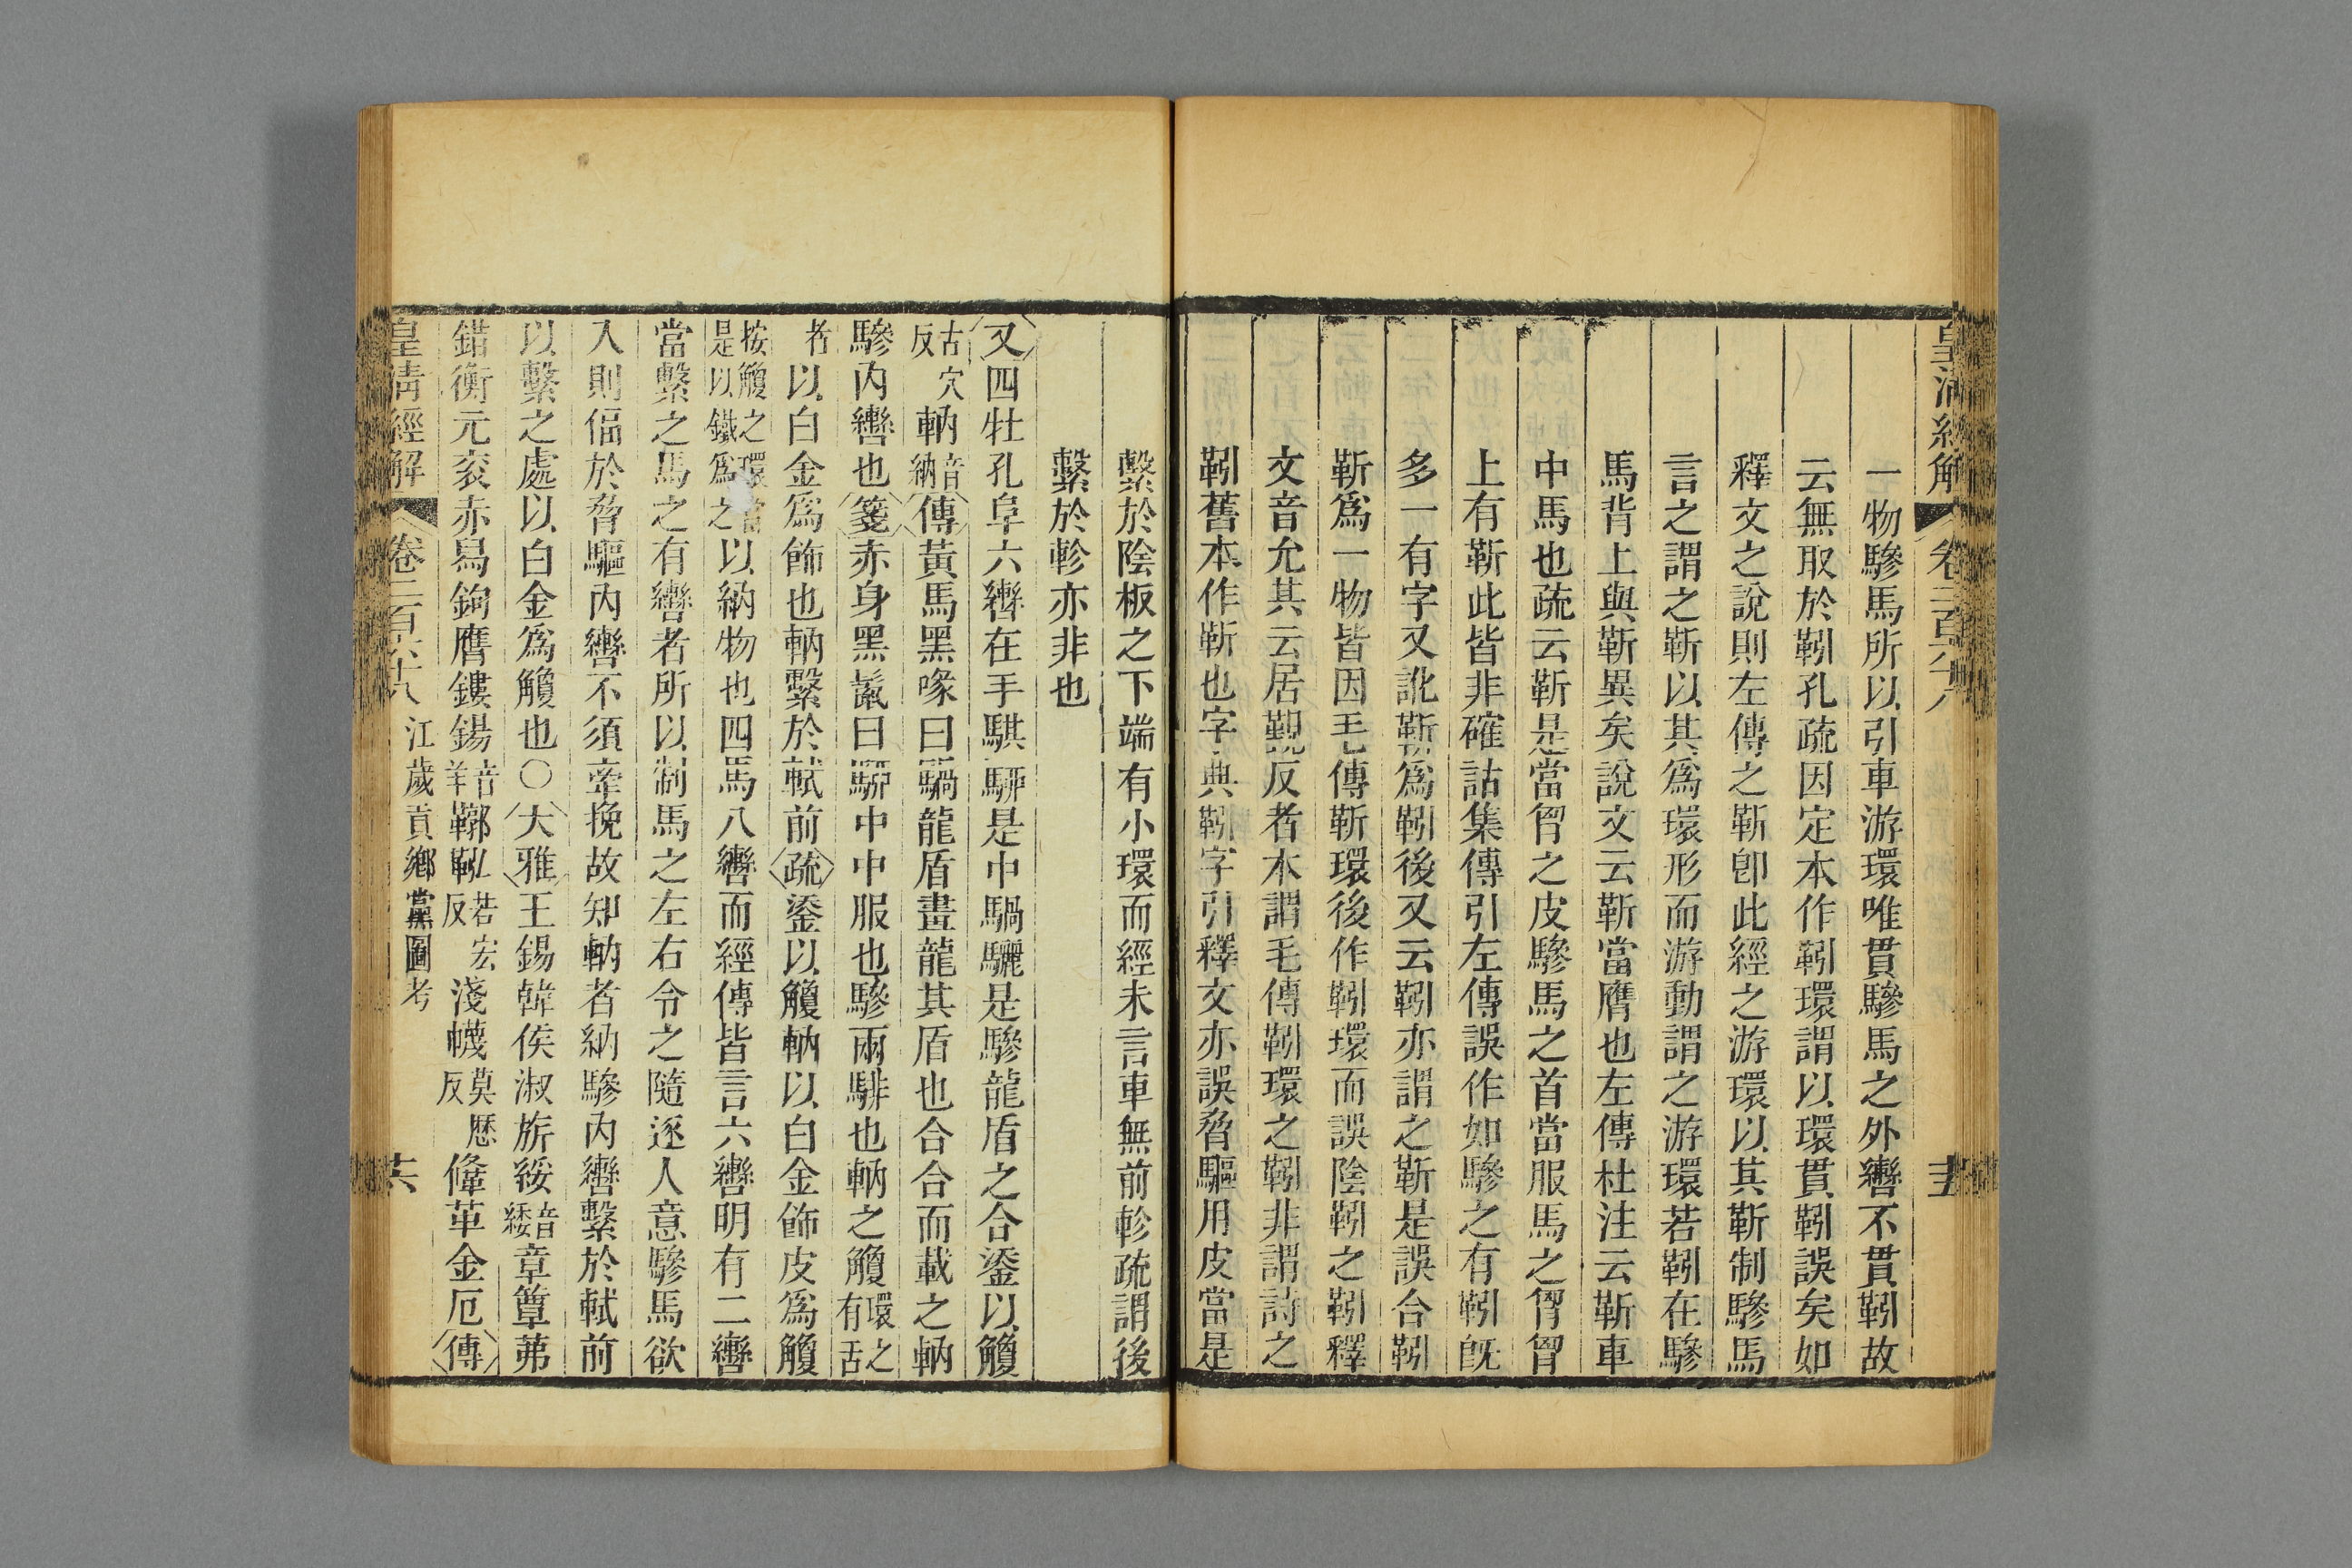 皇清經解 卷二百六十八 十五
一物驂馬所以引車游環唯貫驂馬之外轡不貫靷故
云無取於靷孔疏因定本作靷環謂以環貫靷誤矣如
釋文之說則左傳之靳卽此經之游環以其靳制驂馬
言之謂之靳以其爲環形而游動謂之游環若靷在驂
馬背上與靳異矣說文云靳當膺也左傳杜注云靳車
中馬也疏云靳是當胷之皮驂馬之首當服馬之胷胷
上有靳此皆非確詁集傳引左傳誤作如驂之有靷旣
多一有字又訛靳爲靷後又云靷亦謂之靳是誤合靷
靳爲一物皆因毛傳靳環後作靷環而誤陰靷之靷釋
文音允其云居覲反者本謂毛傳靷環之靷非謂詩之
靷舊本作靳也字典靷字引釋文亦誤脅驅用皮當是
繫於陰板之下端有小環而經未言車無前軫疏謂後
繫於軫亦非也
又四牡孔阜六轡在手騏駵是中騧驪是驂龍盾之合鋈以觼
古穴反軜音納傳黃馬黑喙曰騧龍盾畫龍其盾也合合而載之軜
驂內轡也箋赤身黑鬣曰駵中中服也驂兩騑也軜之觼環之有舌
者以白金爲飾也軜繫於軾前疏鋈以觼軜以白金飾皮爲觼
按觼之環當是以鐵爲之以納物也四馬八轡而經傳皆言六轡明有二轡
當繫之馬之有轡者所以制馬之左右令之隨逐人意驂馬欲
入則偪於脅驅內轡不須牽挽故知軜者納驂內轡繫於軾前
以繫之處以白金爲觼也○大雅王錫韓侯淑旂綏音緌章簟茀
錯衡元衮赤舄鉤膺鏤錫音羊鞹鞃苦宏反淺幭莫歷反鞗革金厄傳
皇清經解 卷二百六十八 江歲貢鄉黨圖考 十六